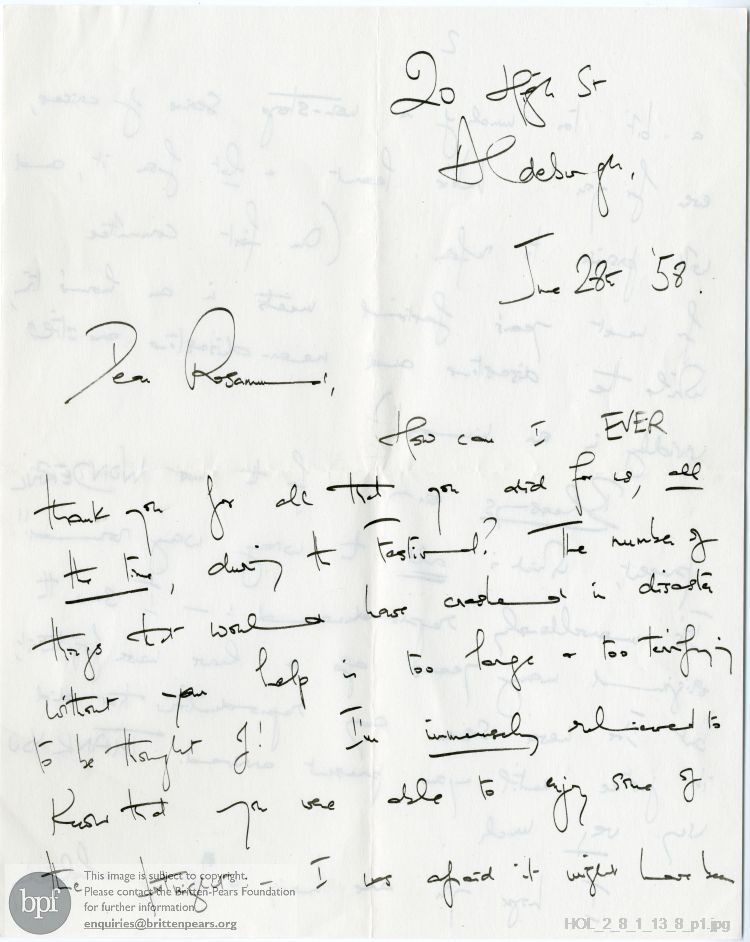 20 High St
Aldeburgh.
June 28th '58.
Dear Rosamund,
How can I EVER
thank you for all that you did for us, all
the time, during the Festival? The number of
things that would have crashed in disaster
without your help is too large & too terrifying
to be thought of! I'm immensely relieved to
know that you were able to enjoy some of
the fortnight – I was afraid it might have been
This image is subject to copyright.
Please contact the Britten-Pears Foundation
for further information.
enquiries@brittenpears.org
bpf
HOL_2_8_1_13_8_p1.jpg